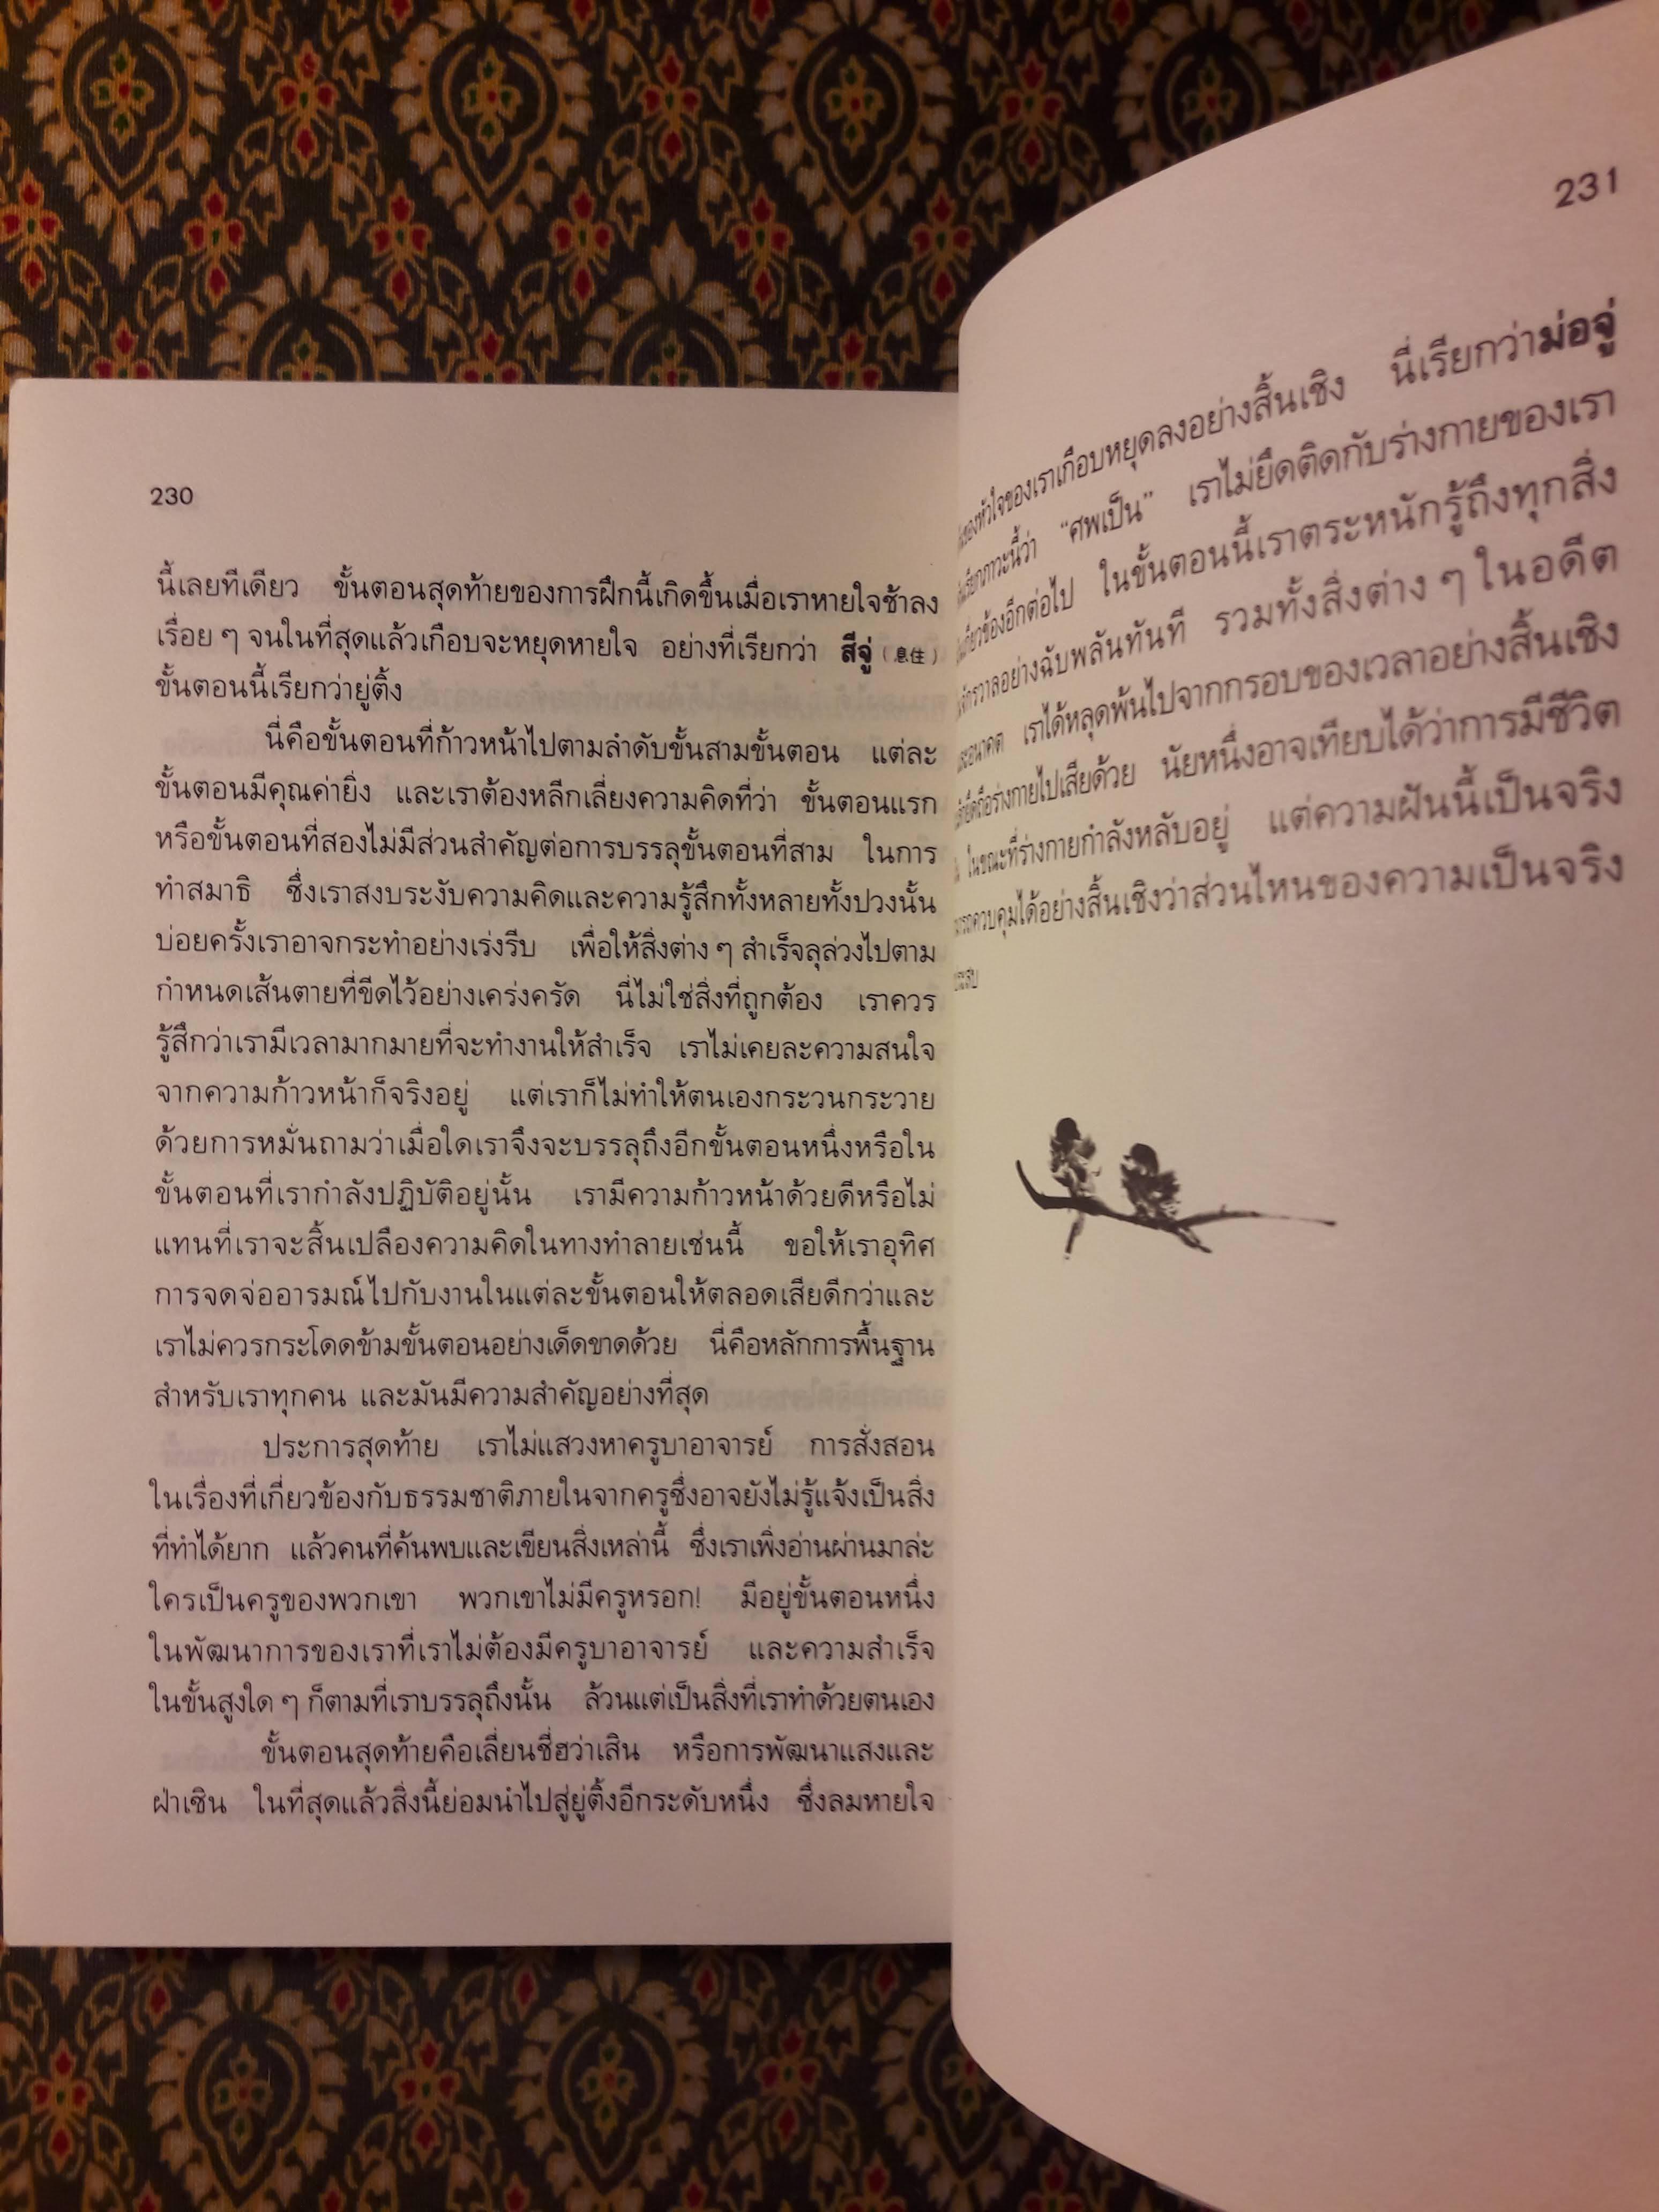 230
นี้เลยทีเดียว ขั้นตอนสุดท้ายของการฝึกนี้เกิดขึ้นเมื่อเราหายใจช้าลง
เรื่อย ๆ จนในที่สุดแล้วเกือบจะหยุดหายใจ อย่างที่เรียกว่า สีจู่ (息住)
ขั้นตอนนี้เรียกว่ายู่ติ้ง
นี่คือขั้นตอนที่ก้าวหน้าไปตามลำดับขั้นสามขั้นตอน แต่ละ
ขั้นตอนมีคุณค่ายิ่ง และเราต้องหลีกเลี่ยงความคิดที่ว่า ขั้นตอนแรก
หรือขั้นตอนที่สองไม่มีส่วนสำคัญต่อการบรรลุขั้นตอนที่สาม ในการ
ทำสมาธิ ซึ่งเราสงบระงับความคิดและความรู้สึกทั้งหลายทั้งปวงนั้น
บ่อยครั้งเราอาจกระทำอย่างเร่งรีบ เพื่อให้สิ่งต่าง ๆ สำเร็จลุล่วงไปตาม
กำหนดเส้นตายที่ขีดไว้อย่างเคร่งครัด นี่ไม่ใช่สิ่งที่ถูกต้อง เราควร
รู้สึกว่าเรามีเวลามากมายที่จะทำงานให้สำเร็จ เราไม่เคยละความสนใจ
จากความก้าวหน้าก็จริงอยู่ แต่เราก็ไม่ทำให้ตนเองกระวนกระวาย
ด้วยการหมั่นถามว่าเมื่อใดเราจึงจะบรรลุถึงอีกขั้นตอนหนึ่งหรือใน
ขั้นตอนที่เรากำลังปฏิบัติอยู่นั้น เรามีความก้าวหน้าด้วยดีหรือไม่
แทนที่เราจะสิ้นเปลืองความคิดในทางทำลายเช่นนี้ ขอให้เราอุทิศ
การจดจ่ออารมณ์ไปกับงานในแต่ละขั้นตอนให้ตลอดเสียดีกว่าและ
เราไม่ควรกระโดดข้ามขั้นตอนอย่างเด็ดขาดด้วย นี่คือหลักการพื้นฐาน
สำหรับเราทุกคน และมันมีความสำคัญอย่างที่สุด
ประการสุดท้าย เราไม่แสวงหาครูบาอาจารย์ การสั่งสอน
ในเรื่องที่เกี่ยวข้องกับธรรมชาติภายในจากครูซึ่งอาจยังไม่รู้แจ้งเป็นสิ่ง
ที่ทำได้ยาก แล้วคนที่ค้นพบและเขียนสิ่งเหล่านี้ ซึ่งเราเพิ่งอ่านผ่านมาล่ะ
ใครเป็นครูของพวกเขา พวกเขาไม่มีครูหรอก! มีอยู่ขั้นตอนหนึ่ง
ในพัฒนาการของเราที่เราไม่ต้องมีครูบาอาจารย์ และความสำเร็จ
ในขั้นสูงใด ๆ ก็ตามที่เราบรรลุถึงนั้น ล้วนแต่เป็นสิ่งที่เราทำด้วยตนเอง
ขั้นตอนสุดท้ายคือเลี่ยนชี่ฮว่าเสิน หรือการพัฒนาแสงและ
ฝ่าเชิน ในที่สุดแล้วสิ่งนี้ย่อมนำไปสู่ยู่ติ้งอีกระดับหนึ่ง ซึ่งลมหายใจ
231
ของหัวใจของเราเกือบหยุดลงอย่างสิ้นเชิง นี่เรียกว่าม่อจู่
เรียกภาวะนี้ว่า “ศพเป็น” เราไม่ยึดติดกับร่างกายของเรา
เกี่ยวข้องอีกต่อไป ในขั้นตอนนี้เราตระหนักรู้ถึงทุกสิ่ง
จักรวาลอย่างฉับพลันทันที รวมทั้งสิ่งต่าง ๆ ในอดีต
อนาคต เราได้หลุดพ้นไปจากกรอบของเวลาอย่างสิ้นเชิง
ยึดถือร่างกายไปเสียด้วย นัยหนึ่งอาจเทียบได้ว่าการมีชีวิต
ในขณะที่ร่างกายกำลังหลับอยู่ แต่ความฝันนี้เป็นจริง
ควบคุมได้อย่างสิ้นเชิงว่าส่วนไหนของความเป็นจริง